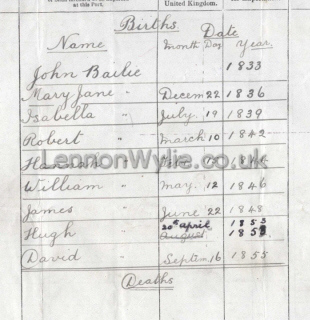 at this Port.
United Kingdom.
Births
Date
Name
Month Day
Year
John Bailie
1833
Mary Jane " Decem 22 1836
Isabella " July 19 1839
Robert " March 10 1842
LennonWylie.co.uk
William " May 12 1846
James " June 22 1848
20th april 1853
Hugh " August
David " Septem 16 1855
Deaths